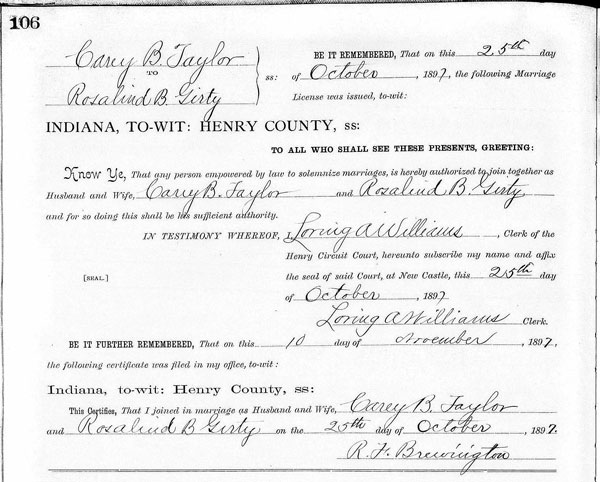 106
Carey B. Taylor
TO
Rosalind B. Girty
ss:
BE IT REMEMBERED, That on this 25th day
of October, 1897, the following Marriage
License was issued, to-wit:
INDIANA, TO-WIT: HENRY COUNTY, ss:
TO ALL WHO SHALL SEE THESE PRESENTS, GREETING:
Know Ye, That any person empowered by law to solemnize marriages, is hereby authorized to join together as
Husband and Wife, Carey B. Taylor and Rosalind B. Girty
and for so doing this shall be his sufficient authority.
IN TESTIMONY WHEREOF, I, Loring A Williams, Clerk of the
Henry Circuit Court, hereunto subscribe my name and affix
[SEAL.]
the seal of said Court, at New Castle, this 25th day
of October, 1897
Loring A Williams Clerk.
BE IT FURTHER REMEMBERED, That on this 10 day of November, 1897,
the following certificate was filed in my office, to-wit:
Indiana, to-wit: Henry County, ss:
This Certifies, That I joined in marriage as Husband and Wife, Carey B. Taylor
and Rosalind B Girty on the 25th day of October, 1897.
R. F. Brewington